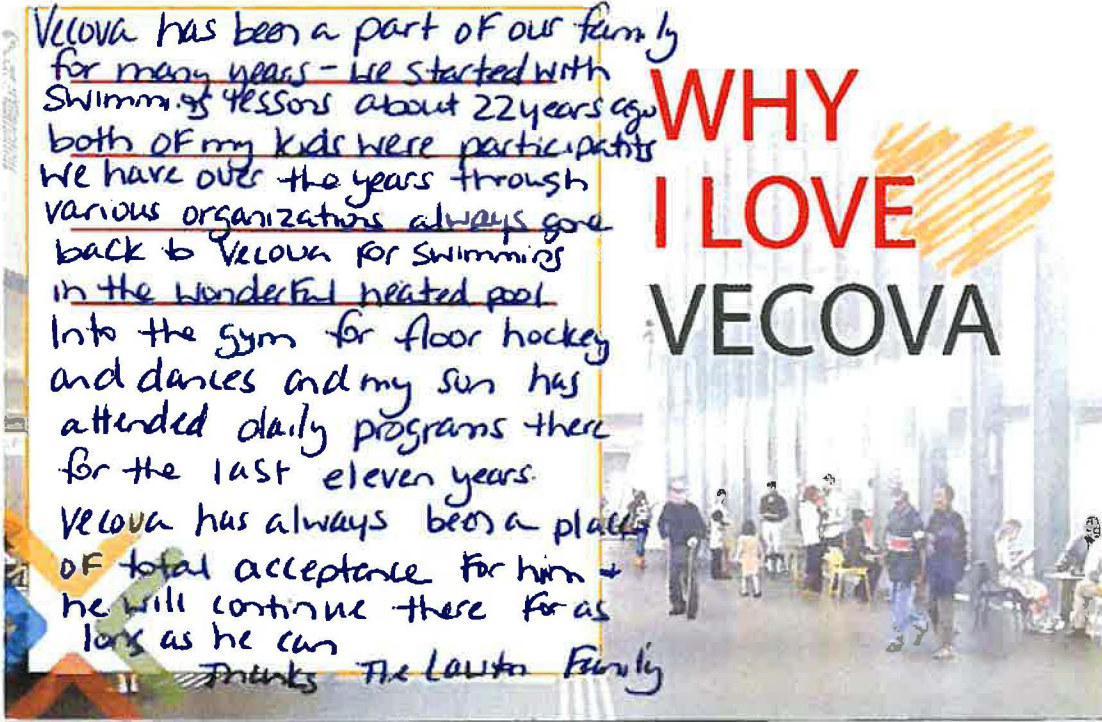 Vecova has been a part of our family
for many years - we started with
swimming lessons about 22 years ago
both of my kids were participants
We have over the years through
various organizations always gone
back to Vecova for swimming
in the wonderful heated pool
Into the gym for floor hockey
and dances and my son has
attended daily programs there
for the last eleven years.
Vecova has always been a place
of total acceptance for him +
he will continue there for as
long as he can
Thanks The Lawton Family
WHY
I LOVE
VECOVA